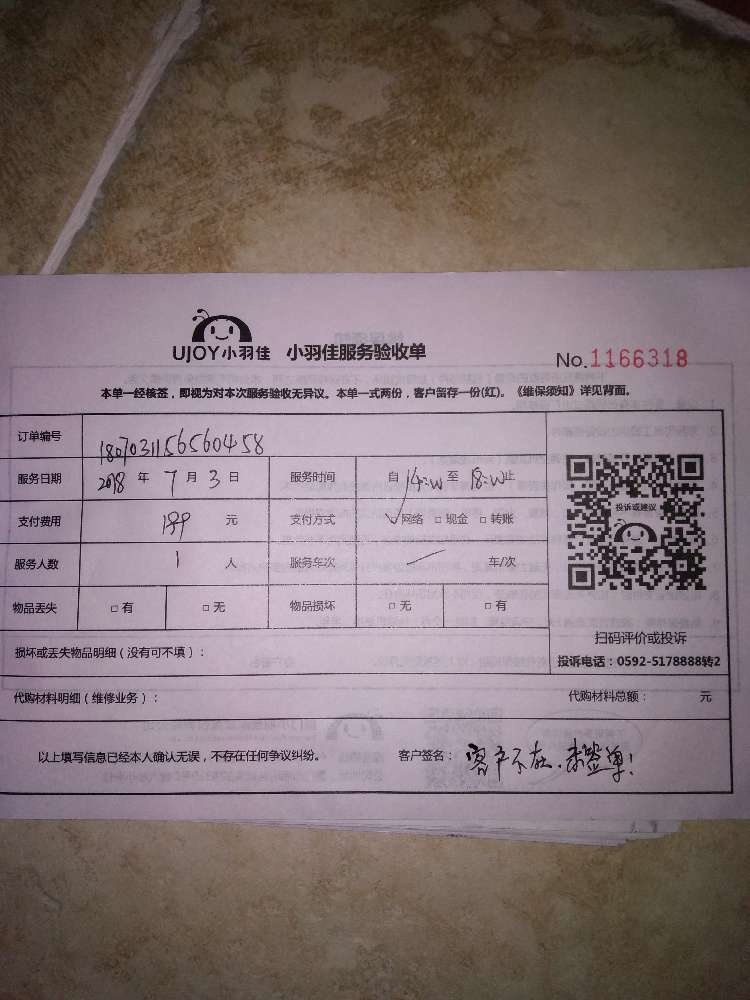 UJOY小羽佳 小羽佳服务验收单
No.1166318
本单一经核签，即视为对本次服务验收无异议。本单一式两份，客户留存一份(红)。《维保须知》详见背面。
订单编号 1807031156560458
服务日期 2018 年 7 月 3 日 服务时间 自 14:00 至 18:00 止
投诉或建议
支付费用 199 元 支付方式 ✓网络 □现金 □转账
服务人数 1 人 服务车次 车/次
物品丢失 □有 □无 物品损坏 □无 □有
扫码评价或投诉
损坏或丢失物品明细（没有可不填）：
投诉电话：0592-5178888转2
代购材料明细（维修业务）： 代购材料总额： 元
以上填写信息已经本人确认无误，不存在任何争议纠纷。 客户签名： 客户不在，未签单！